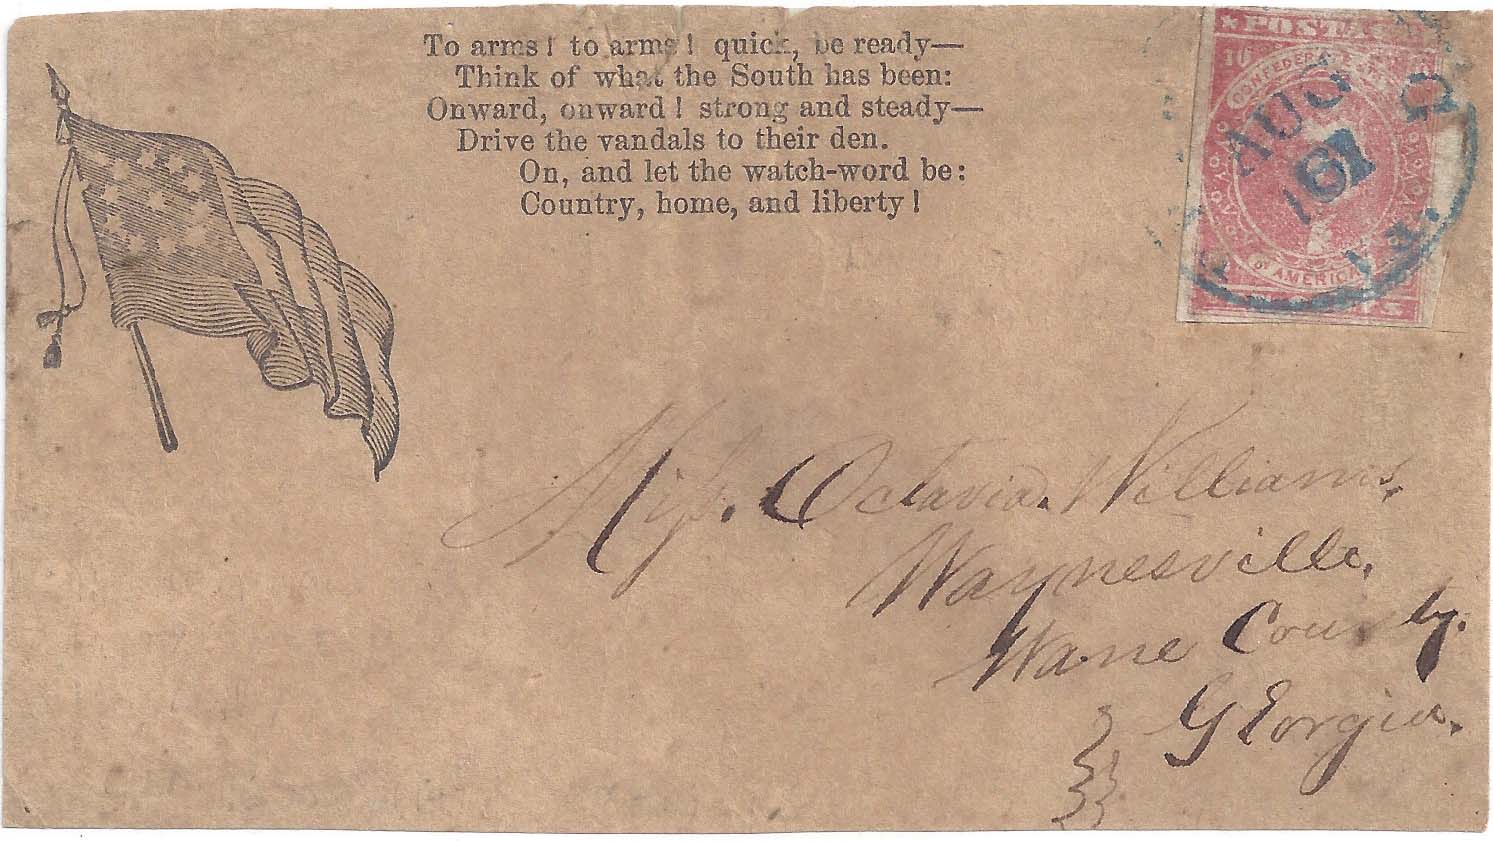 To arms! to arms! quick, be ready—
Think of what the South has been:
Onward, onward! strong and steady—
Drive the vandals to their den.
On, and let the watch-word be:
Country, home, and liberty!
POSTAGE
10
CONFEDERATE STATES
OF AMERICA
AUG
10
61
VA.
Miss. Octavia. Williams,
Waynesville,
Wane County.
Georgia.